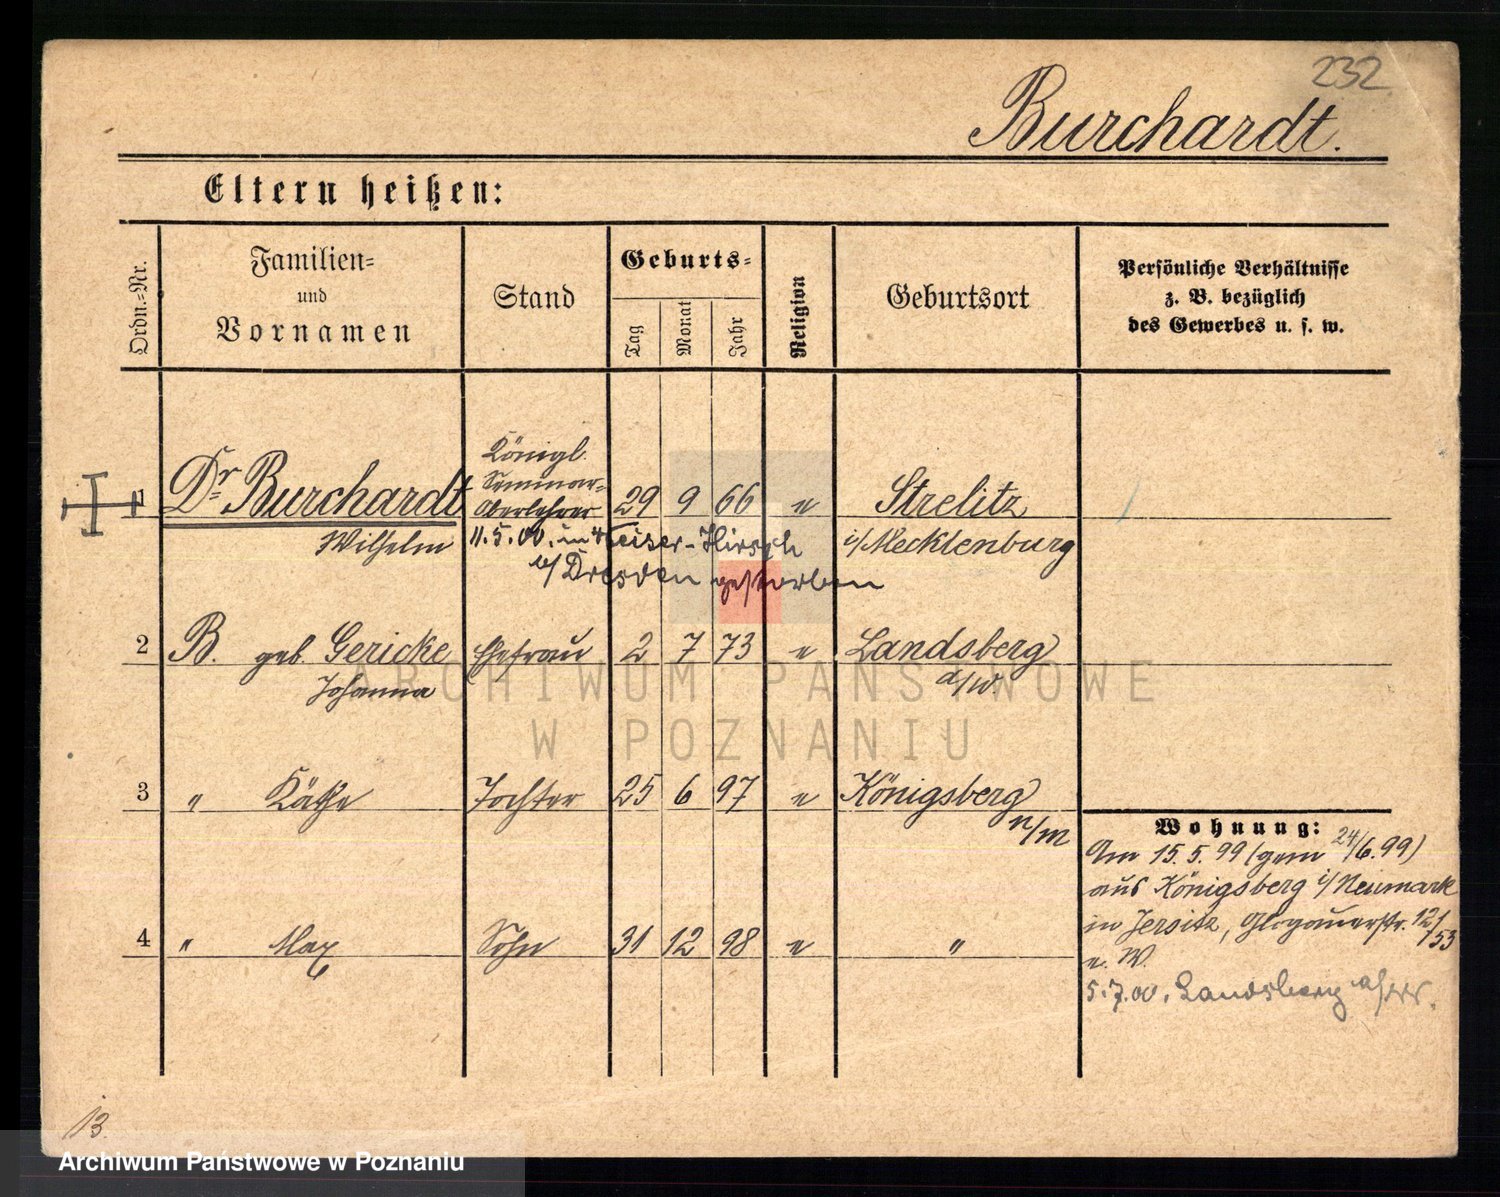 232
Burchardt.
Eltern heißen:
Ordn.=Nr.
Familien=
und
Vornamen
Stand
Geburts=
Tag
Monat
Jahr
Religion
Geburtsort
Persönliche Verhältnisse
z. B. bezüglich
des Gewerbes u. s. w.
1 Dr Burchardt Königl. Seminar= Oberlehrer 29 9 66 e Strelitz
Wilhelm i/Mecklenburg
11.5.00. in Weiser-Hirsch
b/Dresden gestorben
2 B. geb. Gericke Ehefrau 2 7 73 e Landsberg
Johanna a/W
3 " Käthe Tochter 25 6 97 e Königsberg
n/m
4 " Max Sohn 31 12 98 e "
Wohnung:
Am 15.5.99 (gem 24/6.99)
aus Königsberg i/Neumark
in Jersitz, Glogauerstr. 121/53
e. W.
5.7.00. Landsberg a/W.
ARCHIWUM PAŃSTWOWE
W POZNANIU
B.
Archiwum Państwowe w Poznaniu